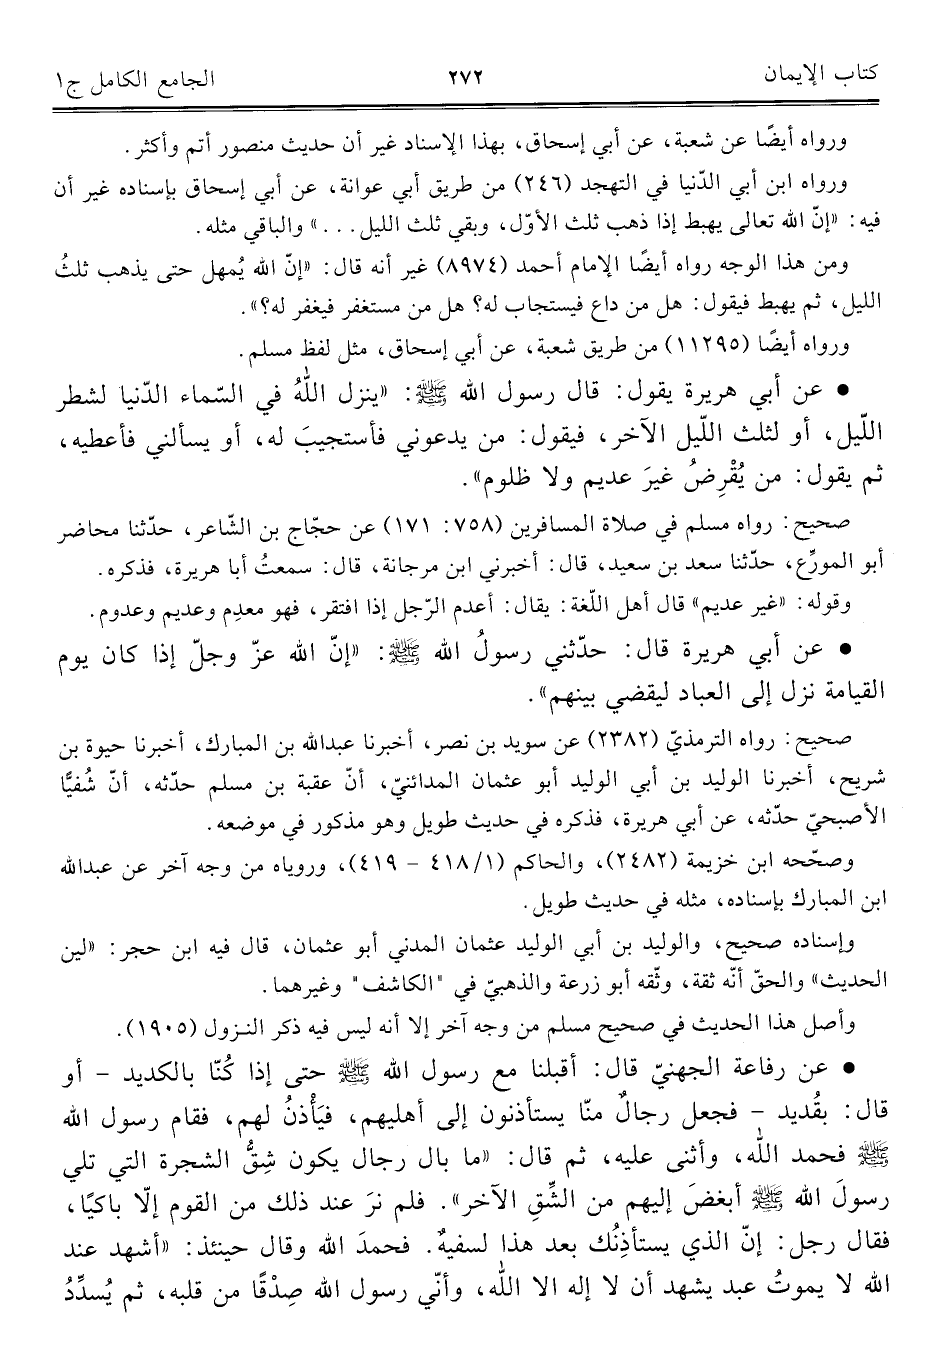 كتاب الإيمان ٢٧٢ الجامع الكامل ج١
ورواه أيضًا عن شعبة، عن أبي إسحاق، بهذا الإسناد غير أن حديث منصور أتم وأكثر.
ورواه ابن أبي الدّنيا في التهجد (٢٤٦) من طريق أبي عوانة، عن أبي إسحاق بإسناده غير أن
فيه: «إنّ الله تعالى يهبط إذا ذهب ثلث الأوّل، وبقي ثلث الليل...» والباقي مثله.
ومن هذا الوجه رواه أيضًا الإمام أحمد (٨٩٧٤) غير أنه قال: «إنّ الله يُمهل حتى يذهب ثلثُ
الليل، ثم يهبط فيقول: هل من داع فيستجاب له؟ هل من مستغفر فيغفر له؟».
ورواه أيضًا (١١٢٩٥) من طريق شعبة، عن أبي إسحاق، مثل لفظ مسلم.
• عن أبي هريرة يقول: قال رسول الله ﷺ: «ينزل اللهُ في السّماء الدّنيا لشطر
اللّيل، أو لثلث اللّيل الآخر، فيقول: من يدعوني فأستجيبَ له، أو يسألني فأعطيه،
ثم يقول: من يُقْرِضُ غيرَ عديم ولا ظلوم».
صحيح: رواه مسلم في صلاة المسافرين (٧٥٨: ١٧١) عن حجّاج بن الشّاعر، حدّثنا محاضر
أبو المورِّع، حدّثنا سعد بن سعيد، قال: أخبرني ابن مرجانة، قال: سمعتُ أبا هريرة، فذكره.
وقوله: «غير عديم» قال أهل اللّغة: يقال: أعدم الرّجل إذا افتقر، فهو معدِم وعديم وعدوم.
• عن أبي هريرة قال: حدّثني رسولُ الله ﷺ: «إنّ الله عزّ وجلّ إذا كان يوم
القيامة نزل إلى العباد ليقضي بينهم».
صحيح: رواه الترمذيّ (٢٣٨٢) عن سويد بن نصر، أخبرنا عبدالله بن المبارك، أخبرنا حيوة بن
شريح، أخبرنا الوليد بن أبي الوليد أبو عثمان المدائنيّ، أنّ عقبة بن مسلم حدّثه، أنّ شُفيًّا
الأصبحيّ حدّثه، عن أبي هريرة، فذكره في حديث طويل وهو مذكور في موضعه.
وصحّحه ابن خزيمة (٢٤٨٢)، والحاكم (٤١٨/١ - ٤١٩)، وروياه من وجه آخر عن عبدالله
ابن المبارك بإسناده، مثله في حديث طويل.
وإسناده صحيح، والوليد بن أبي الوليد عثمان المدني أبو عثمان، قال فيه ابن حجر: «لين
الحديث» والحقّ أنّه ثقة، وثقه أبو زرعة والذهبيّ في "الكاشف" وغيرهما.
وأصل هذا الحديث في صحيح مسلم من وجه آخر إلا أنه ليس فيه ذكر النـزول (١٩٠٥).
• عن رفاعة الجهنيّ قال: أقبلنا مع رسول الله ﷺ حتى إذا كُنّا بالكديد - أو
قال: بقُديد - فجعل رجالٌ منّا يستأذنون إلى أهليهم، فيَأْذنُ لهم، فقام رسول الله
ﷺ فحمد الله، وأثنى عليه، ثم قال: «ما بال رجال يكون شِقُّ الشجرة التي تلي
رسولَ الله ﷺ أبغضَ إليهم من الشِّقِ الآخر». فلم نرَ عند ذلك من القوم إلّا باكيًا،
فقال رجل: إنّ الذي يستأذِنُك بعد هذا لسفيهٌ. فحمدَ الله وقال حينئذ: «أشهد عند
الله لا يموتُ عبد يشهد أن لا إله الا الله، وأنّي رسول الله صِدْقًا من قلبه، ثم يُسدِّدُ